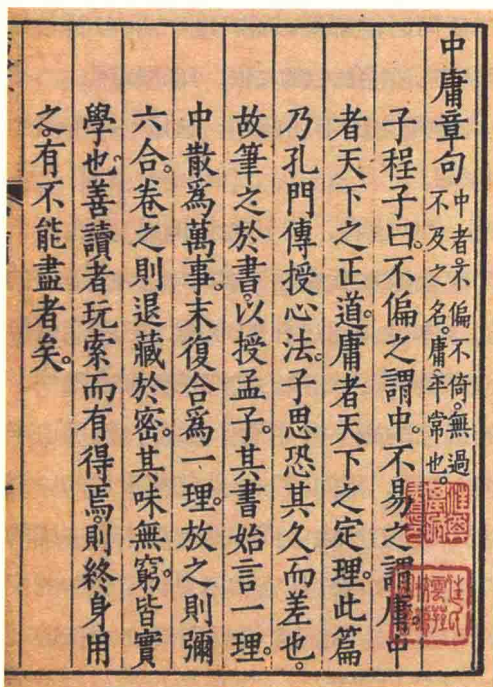 中庸章句
中者。不偏不倚。無過
不及之名。庸。平常也。
子程子曰。不偏之謂中。不易之謂庸。中
者天下之正道。庸者天下之定理。此篇
乃孔門傳授心法。子思恐其久而差也。
故筆之於書。以授孟子。其書始言一理。
中散爲萬事。末復合爲一理。放之則彌
六合。卷之則退藏於密。其味無窮。皆實
學也。善讀者玩索而有得焉。則終身用
之。有不能盡者矣。